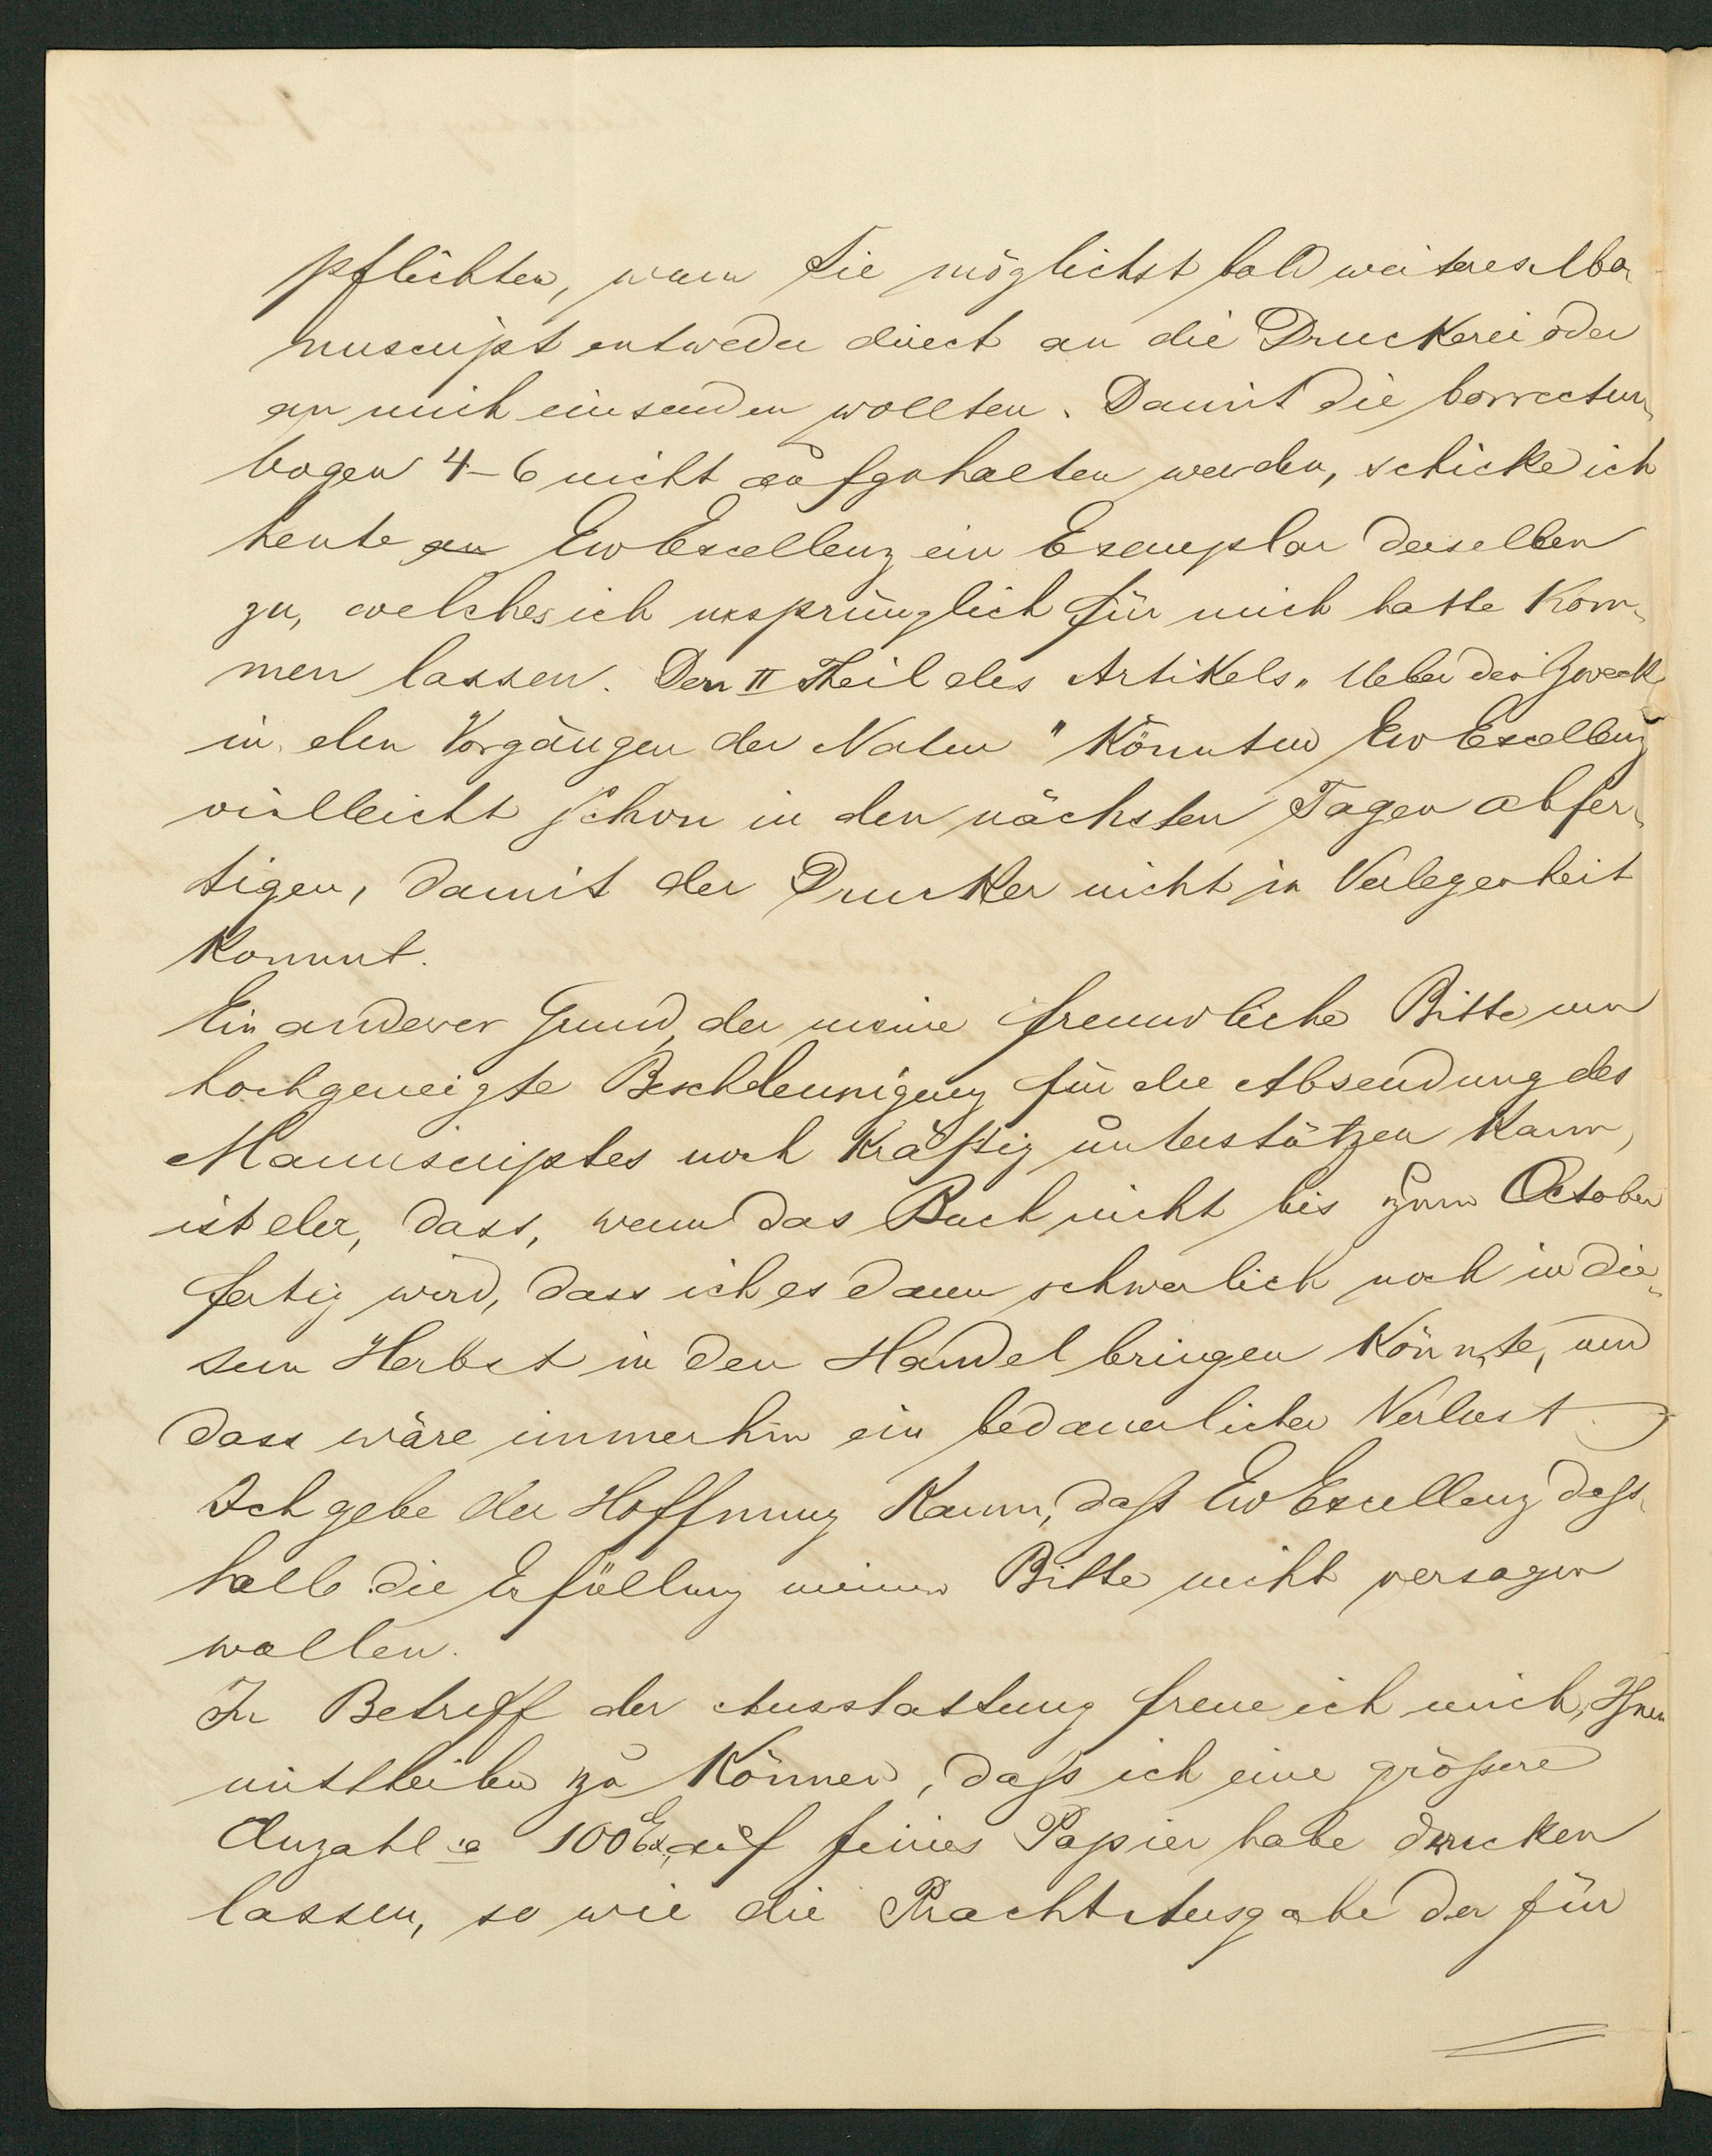 pflichten, wenn Sie möglichst bald weiteres Ma-
nuscript entweder direct an die Druckerei oder
an mich einsenden wollten. Damit die Correctur-
bogen 4-6 nicht aufgehalten werden, schicke ich
heute an Ew Excellenz ein Exemplar derselben
zu, welches ich ursprünglich für mich hatte kom-
men lassen. Den II Theil des Artikels „Ueber den Zweck
in den Vorgängen der Natur" könnten Ew Excellenz
vielleicht schon in den nächsten Tagen abfer-
tigen, damit der Drucker nicht in Verlegenheit
kommt.
Ein anderer Grund, der meine freundliche Bitte um
hochgeneigte Beschleunigung für die Absendung des
Manuscriptes noch kräftig unterstützen kann,
ist der, dass, wenn das Buch nicht bis zum October
fertig wird, dass ich es dann schwerlich noch in die-
sem Herbst in den Handel bringen könnte, und
dass wäre immerhin ein bedauerlicher Verlust.
Ich gebe der Hoffnung Raum, daß Ew Excellenz deß-
halb die Erfüllung meiner Bitte nicht versagen
wollen.
In Betreff der Ausstattung freue ich mich, Ihnen
mittheilen zu können, daß ich eine größere
Anzahl ca 100 Ex. auf feines Papier habe drucken
lassen, so wie die Prachtausgabe der für